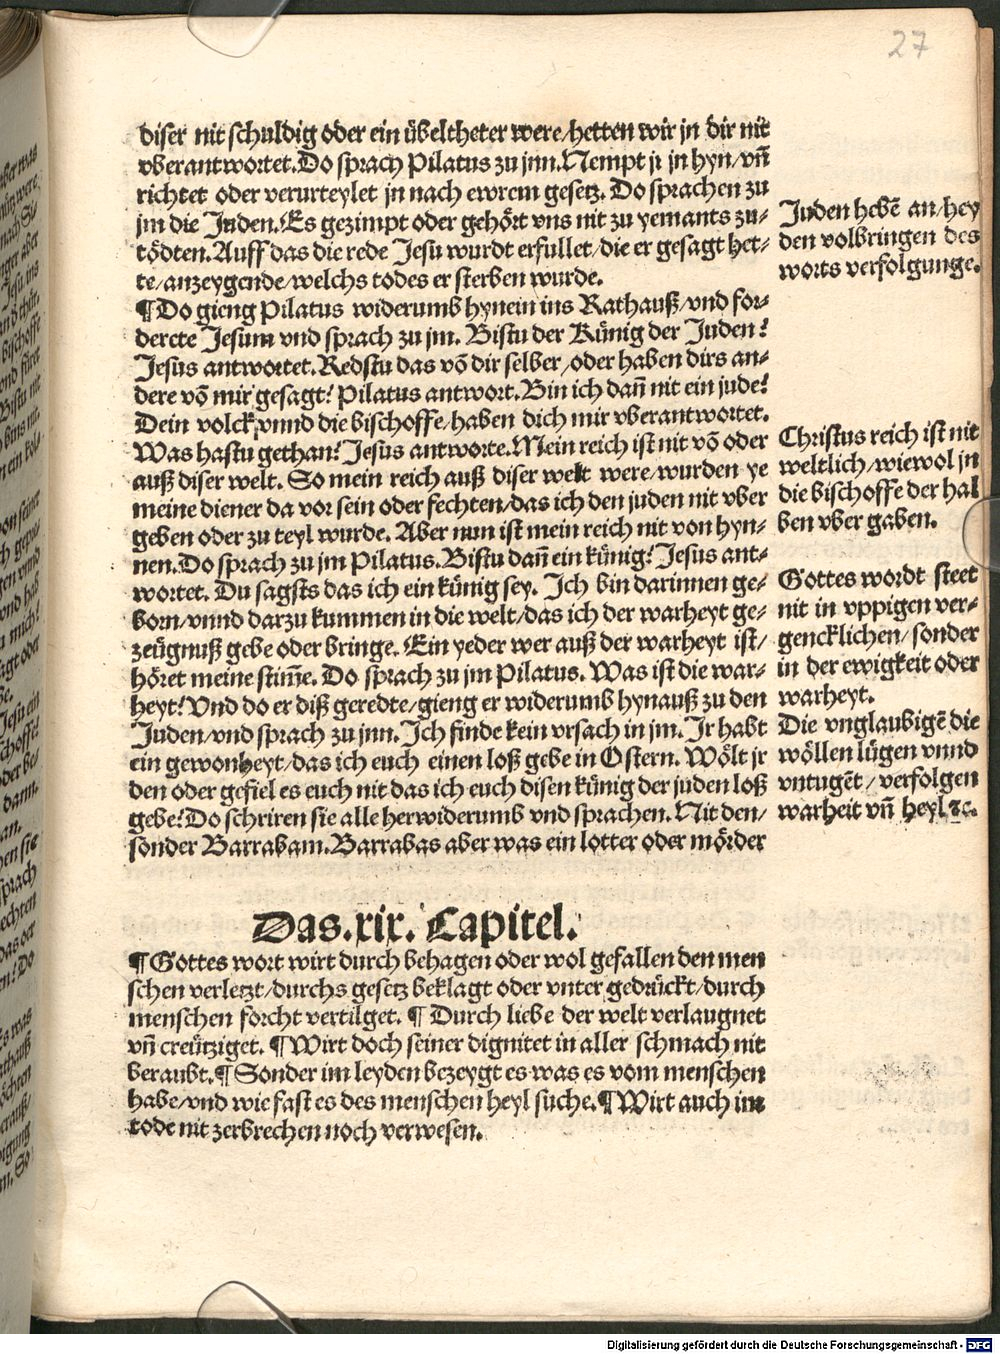 27
diser nit schuldig oder ein übeltheter were/hetten wir jn dir nit
vberantwortet.Do sprach Pilatus zu jnn.Nempt jr jn hyn/vñ
richtet oder verurteylet jn nach ewrem gesetz. Do sprachen zu
jm die Juden.Es gezimpt oder gehört vns nit zu yemants zu-
tödten.Auff das die rede Jesu wurdt erfullet/die er gesagt het-
te/anzeygende/welchs todes er sterben wurde.
¶Do gieng Pilatus widerumb hynein ins Rathauß/vnd for-
derete Jesum vnd sprach zu jm. Bistu der Künig der Juden?
Jesus antwortet.Redstu das võ dir selber/oder haben dirs an-
dere võ mir gesagt? Pilatus antwort.Bin ich dañ nit ein jude?
Dein volck/vnnd die bischoffe/haben dich mir vberantwortet.
Was hastu gethan? Jesus antworte.Mein reich ist nit võ oder
auß diser welt. So mein reich auß diser welt were/wurden ye
meine diener da vor sein oder fechten/das ich den juden nit vber
geben oder zu teyl wurde. Aber nun ist mein reich nit von hyn-
nen.Do sprach zu jm Pilatus.Bistu dañ ein künig? Jesus ant-
wortet. Du sagsts das ich ein künig sey. Ich bin darinnen ge-
born/vnnd darzu kummen in die welt/das ich der warheyt ge-
zeügnuß gebe oder bringe. Ein yeder wer auß der warheyt ist/
höret meine stim̃e. Do sprach zu jm Pilatus. Was ist die war-
heyt? Vnd do er diß geredte/gieng er widerumb hynauß zu den
Juden/vnd sprach zu jnn.Ich finde kein vrsach in jm. Ir habt
ein gewonheyt/das ich euch einen loß gebe in Ostern. Wölt jr
den oder gefiel es euch nit das ich euch disen künig der juden loß
gebe?Do schriren sie alle herwiderumb vnd sprachen.Nit den/
sonder Barrabam.Barrabas aber was ein lotter oder mörder
Juden hebẽ an/hey
den volbringen des
worts verfolgunge.
Christus reich ist nit
weltlich/wiewol jn
die bischoffe der hal
ben vber gaben.
Gottes wordt steet
nit in vppigen ver-
gencklichen/sonder
in der ewigkeit oder
warheyt.
Die vnglaubigẽ die
wöllen lügen vnnd
vntugẽt/verfolgen
warheit vñ heyl ꝛc.
Das.xix. Capitel.
¶Gottes wort wirt durch behagen oder wol gefallen den men
schen verletzt/durchs gesetz beklagt oder vnter gedrückt/durch
menschen forcht vertilget. ¶Durch liebe der welt verlaugnet
vñ creütziget. ¶Wirt doch seiner dignitet in aller schmach nit
beraubt.¶Sonder im leyden bezeygt es was es vom menschen
habe/vnd wie fast es des menschen heyl suche.¶Wirt auch im
tode nit zerbrechen noch verwesen.
Digitalisierung gefördert durch die Deutsche Forschungsgemeinschaft - DFG